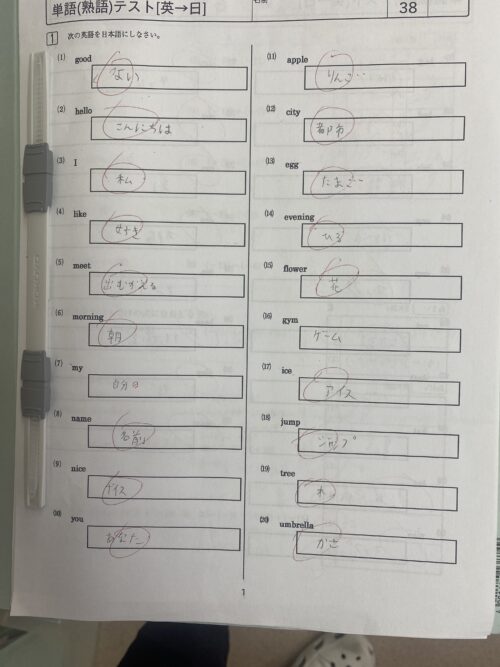 単語(熟語)テスト[英→日]
名前
38
1 次の英語を日本語にしなさい。
(1) good
よい
(2) hello
こんにちは
(3) I
私
(4) like
好き
(5) meet
出むかえる
(6) morning
朝
(7) my
自分
(8) name
名前
(9) nice
ナイス
(10) you
あなた
(11) apple
りんご
(12) city
都市
(13) egg
たまご
(14) evening
ひる
(15) flower
花
(16) gym
ゲーム
(17) ice
アイス
(18) jump
ジャンプ
(19) tree
木
(20) umbrella
かさ
1